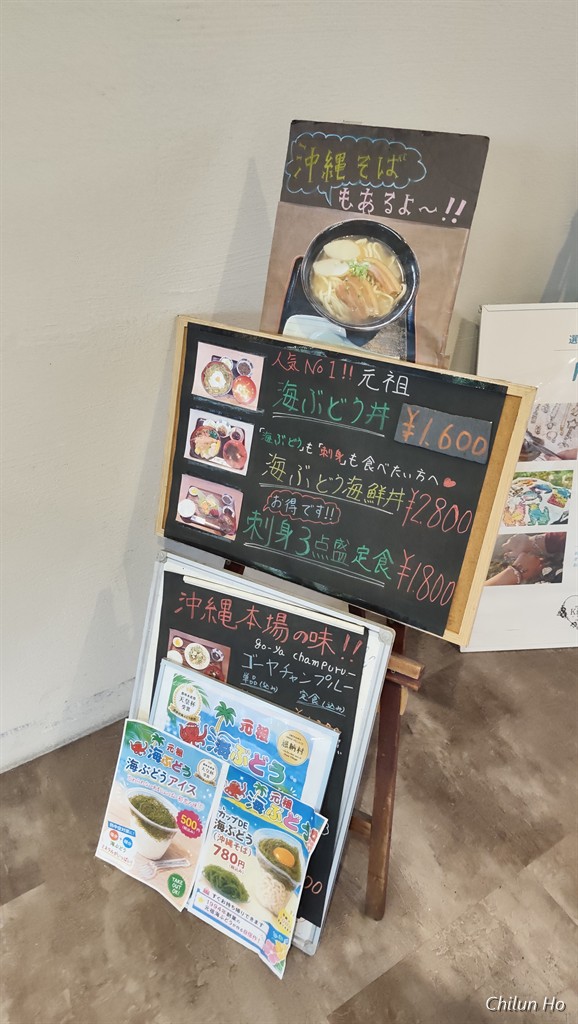 沖縄そば
もあるよ～!!
人気No1!! 元祖
海ぶどう丼
¥1.600
「海ぶどう」も「刺身」も食べたい方へ
海ぶどう海鮮丼 ¥2800
お得です!!
刺身3点盛定食 ¥1.800
沖縄本場の味!!
go-ya champuru-
ゴーヤチャンプルー
単品(込み) 定食(込み)
元祖
海ぶどう
元祖
海ぶどう
海ぶどうアイス
500円
TAKE OUT OK!
元祖
海ぶどう
カップDE
海ぶどう
(沖縄そば)
780円
すぐお持ち帰りできます
Chilun Ho